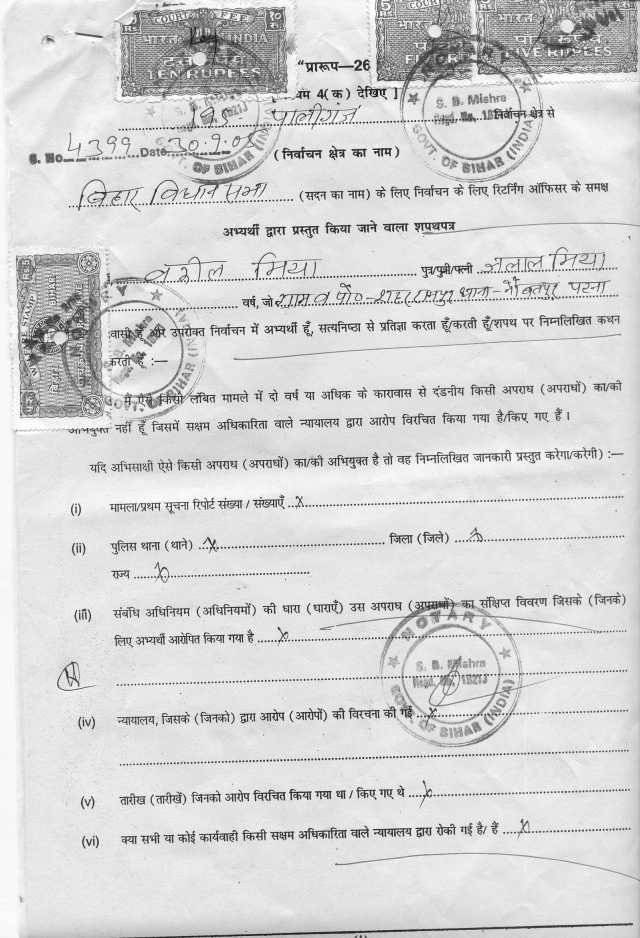 COURT FEE
भारत INDIA
TEN RUPEES
FIVE RUPEES
"प्रारूप—26
4(क) देखिए ]
पालीगंज निर्वाचन क्षेत्र से
S. No. 4399 Date 30.9.05 (निर्वाचन क्षेत्र का नाम)
बिहार विधान सभा (सदन का नाम) के लिए निर्वाचन के लिए रिटर्निंग ऑफिसर के समक्ष
अभ्यर्थी द्वारा प्रस्तुत किया जाने वाला शपथपत्र
मिया पुत्र/पुत्री/पत्नी जलाल मिया
वर्ष, जो ग्राम व पो०- शहर रामपुर थाना- नौबतपुर पटना
हूँ और उपरोक्त निर्वाचन में अभ्यर्थी हूँ, सत्यनिष्ठा से प्रतिज्ञा करता हूँ/करती हूँ/शपथ पर निम्नलिखित कथन
करती हूँ :—
मैं ऐसे किसी लंबित मामले में दो वर्ष या अधिक के कारावास से दंडनीय किसी अपराध (अपराधों) का/की
अभियुक्त नहीं हूँ जिसमें सक्षम अधिकारिता वाले न्यायालय द्वारा आरोप विरचित किया गया है/किए गए हैं ।
यदि अभिसाक्षी ऐसे किसी अपराध (अपराधों) का/की अभियुक्त है तो वह निम्नलिखित जानकारी प्रस्तुत करेगा/करेगी) :—
(i) मामला/प्रथम सूचना रिपोर्ट संख्या / संख्याएँ x
(ii) पुलिस थाना (थाने) x जिला (जिले) x
राज्य x
(iii) संबंधि अधिनियम (अधिनियमों) की धारा (धाराएँ) उस अपराध (अपराधों) का संक्षिप्त विवरण जिसके (जिनके)
लिए अभ्यर्थी आरोपित किया गया है x
(iv) न्यायालय, जिसके (जिनको) द्वारा आरोप (आरोपों) की विरचना की गई x
(v) तारीख (तारीखें) जिनको आरोप विरचित किया गया था / किए गए थे x
(vi) क्या सभी या कोई कार्यवाही किसी सक्षम अधिकारिता वाले न्यायालय द्वारा रोकी गई है/ हैं x
NOTARY
S. B. Mishra
GOVT. OF BIHAR (INDIA)
NOTARY
S. B. Mishra
GOVT. OF BIHAR (INDIA)